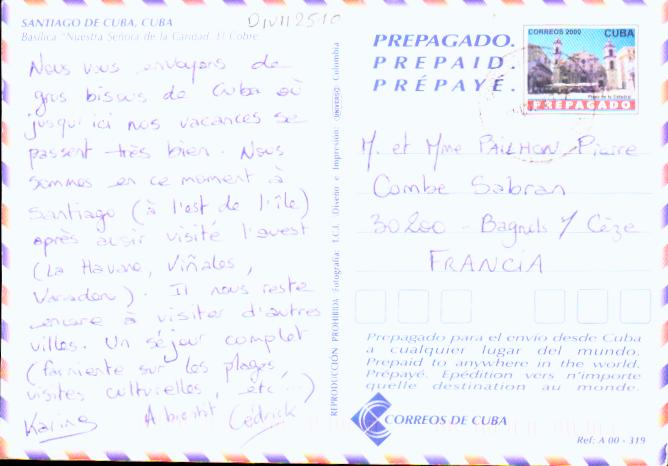 SANTIAGO DE CUBA, CUBA
Basílica "Nuestra Señora de la Caridad. El Cobre
DIVII2510
Nous vous envoyons de
gros bisous de Cuba où
jusqu'ici nos vacances se
passent très bien. Nous
sommes en ce moment à
Santiago (à l'est de l'île)
après avoir visité l'ouest
(La Havane, Viñales,
Varadero). Il nous reste
encore à visiter d'autres
villes. Un séjour complet
(farniente sur les plages,
visites culturelles, etc...)
A bientôt
Karine Cédrick
REPRODUCCION PROHIBIDA Fotografía: T.C.I. Diseño e Impresión: UNIVERSO Colombia
PREPAGADO.
PREPAID.
PRÉPAYÉ.
CORREOS 2000 CUBA
Plaza de la Catedral
PREPAGADO
M. et Mme PAILHON Pierre
Combe Sabran
30200 - Bagnols / Cèze
FRANCIA
Prepagado para el envío desde Cuba
a cualquier lugar del mundo.
Prepaid to anywhere in the world.
Prépayé. Epédition vers n'importe
quelle destination au monde.
CORREOS DE CUBA
Ref: A 00 - 319